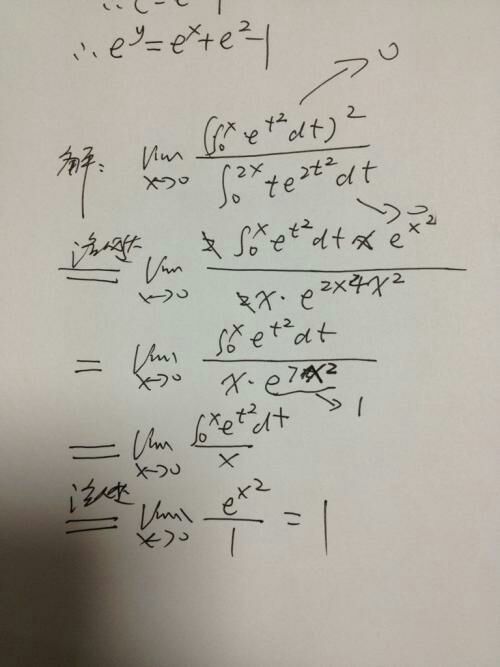 ∴ e^y = e^x + e^2 - 1
解: lim_{x→0} (∫_0^x e^{t^2} dt)^2 / ∫_0^{2x} t e^{2t^2} dt → 0 → 0
洛必达 = lim_{x→0} 2 ∫_0^x e^{t^2} dt e^{x^2} / 2x · e^{2x4x^2}
= lim_{x→0} ∫_0^x e^{t^2} dt / x · e^{7x^2} → 1
= lim_{x→0} ∫_0^x e^{t^2} dt / x
洛必达 = lim_{x→0} e^{x^2} / 1 = 1